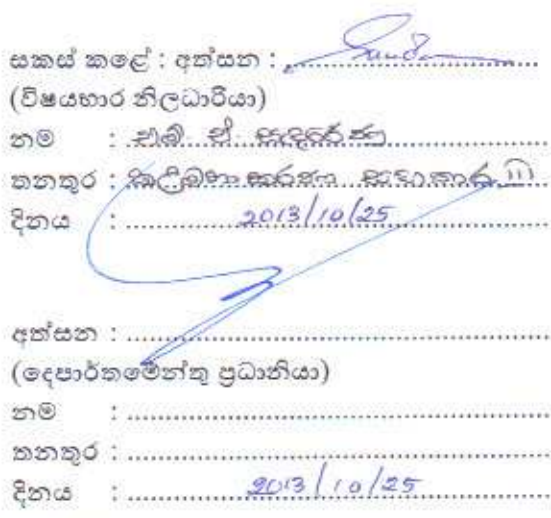 සකස් කළේ : අත්සන :
(විෂයභාර නිලධාරියා)
නම : එබ් ඒ
තනතුර : කළමනාකරණ සහකාර III
දිනය : 2013/10/25
අත්සන :
(දෙපාර්තමේන්තු ප්‍රධානියා)
නම :
තනතුර :
දිනය : 2013/10/25